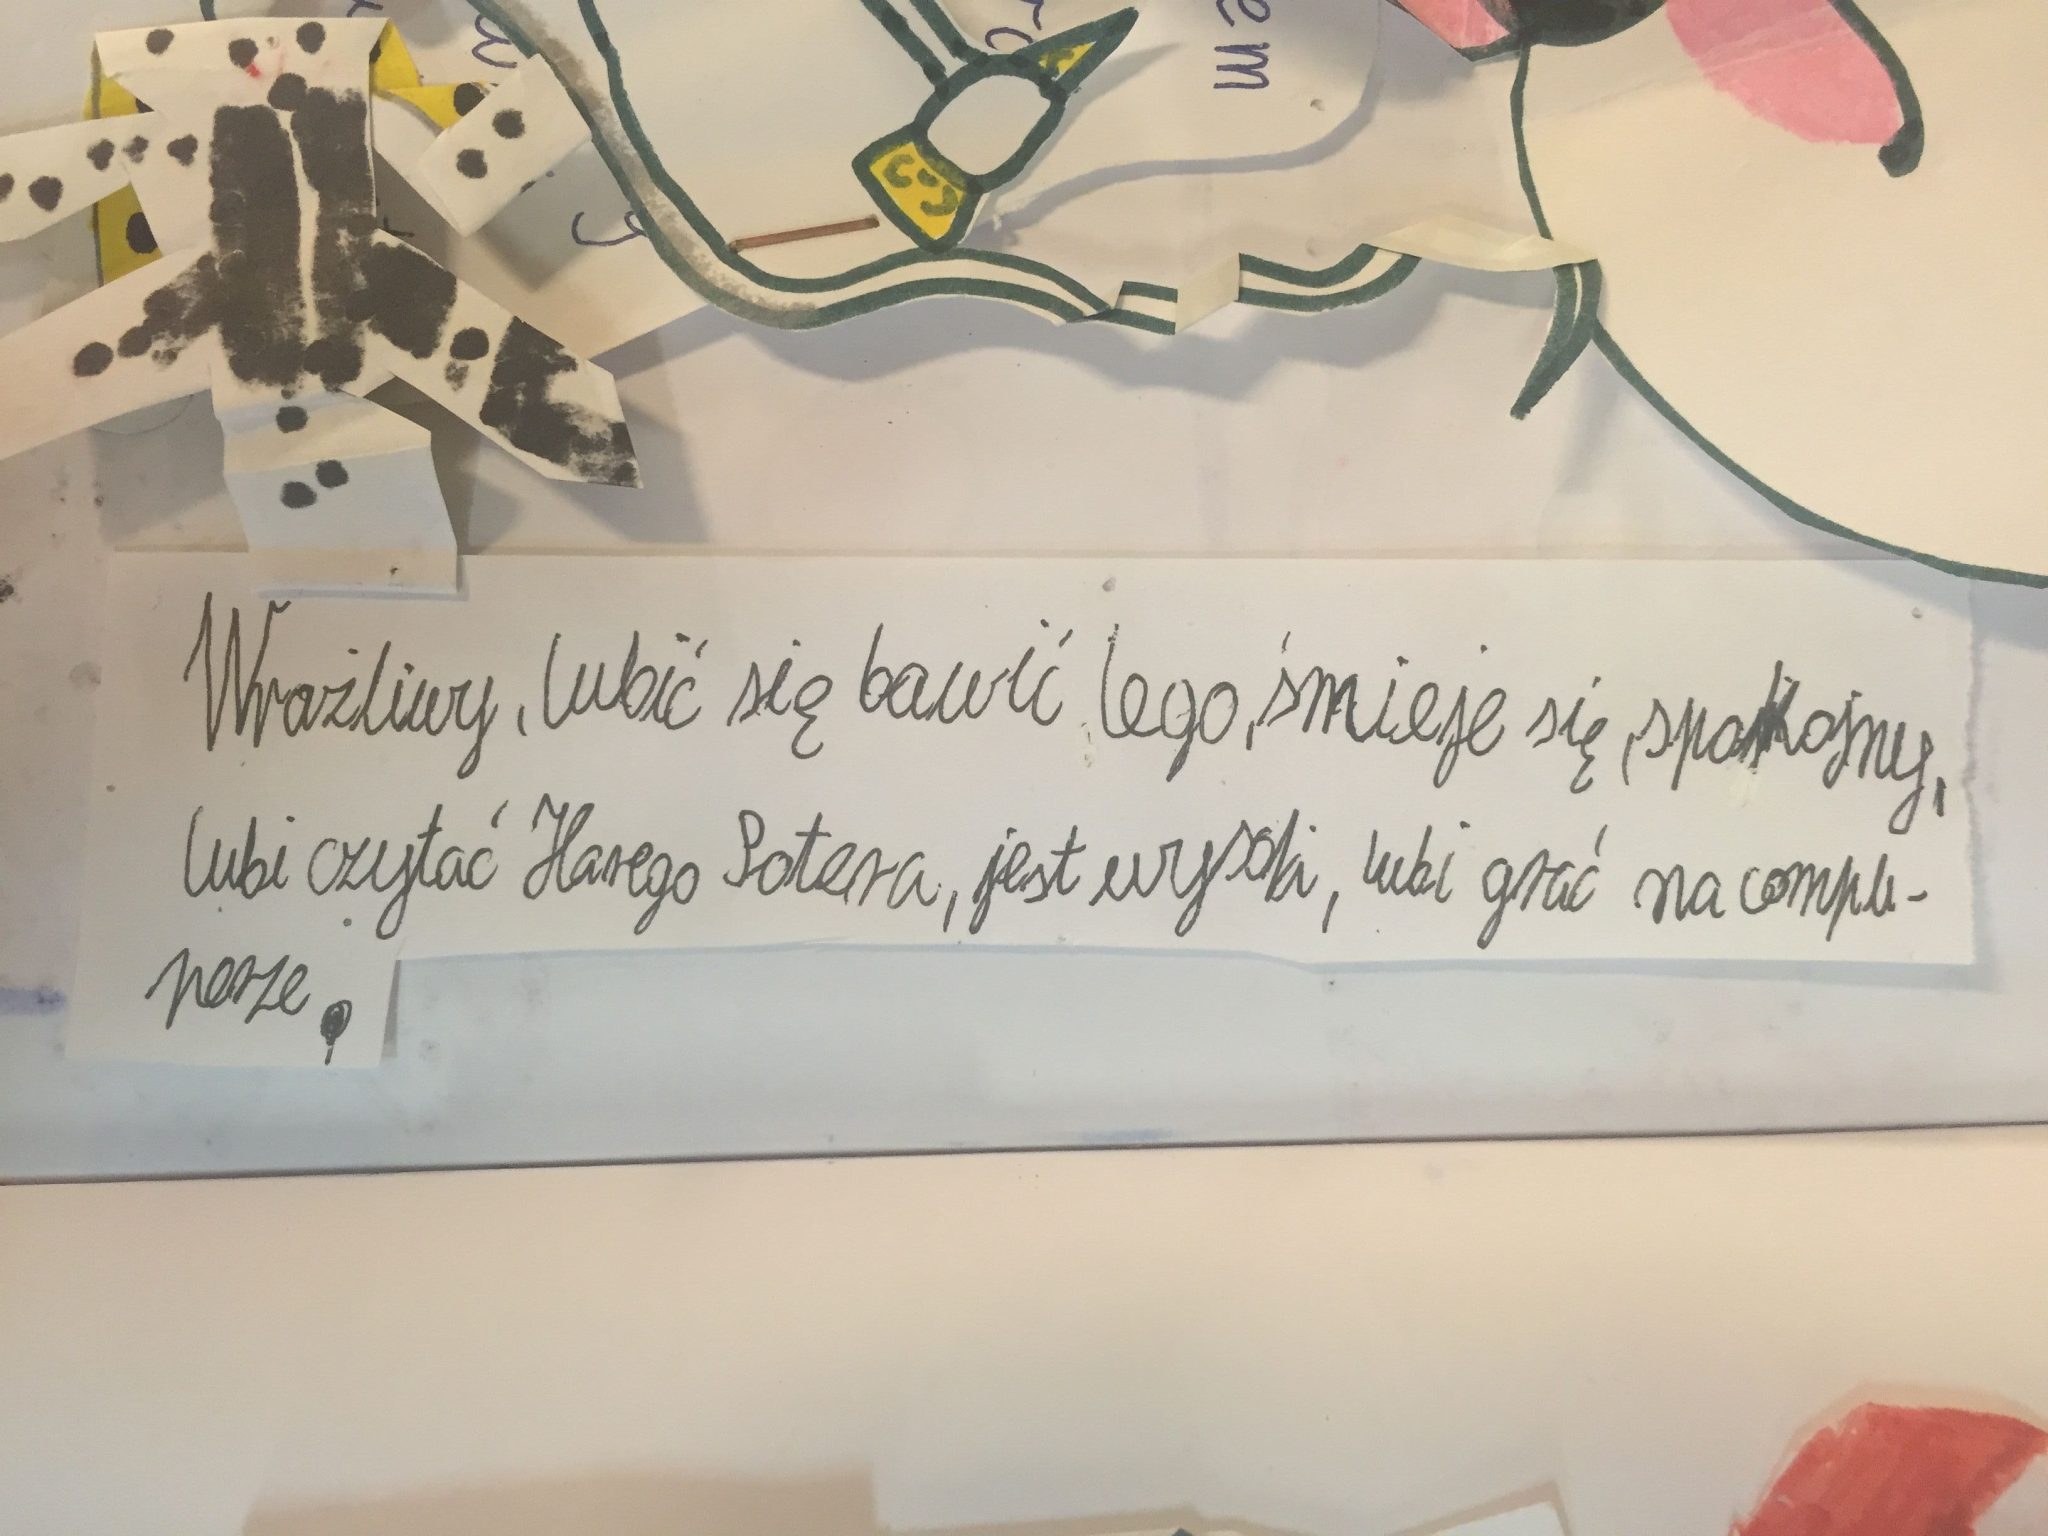 em
Wrażliwy, lubić się bawić lego, śmieje się, spokojny,
lubi czytać Harego Potera, jest wysoki, lubi grać na compu-
perze.